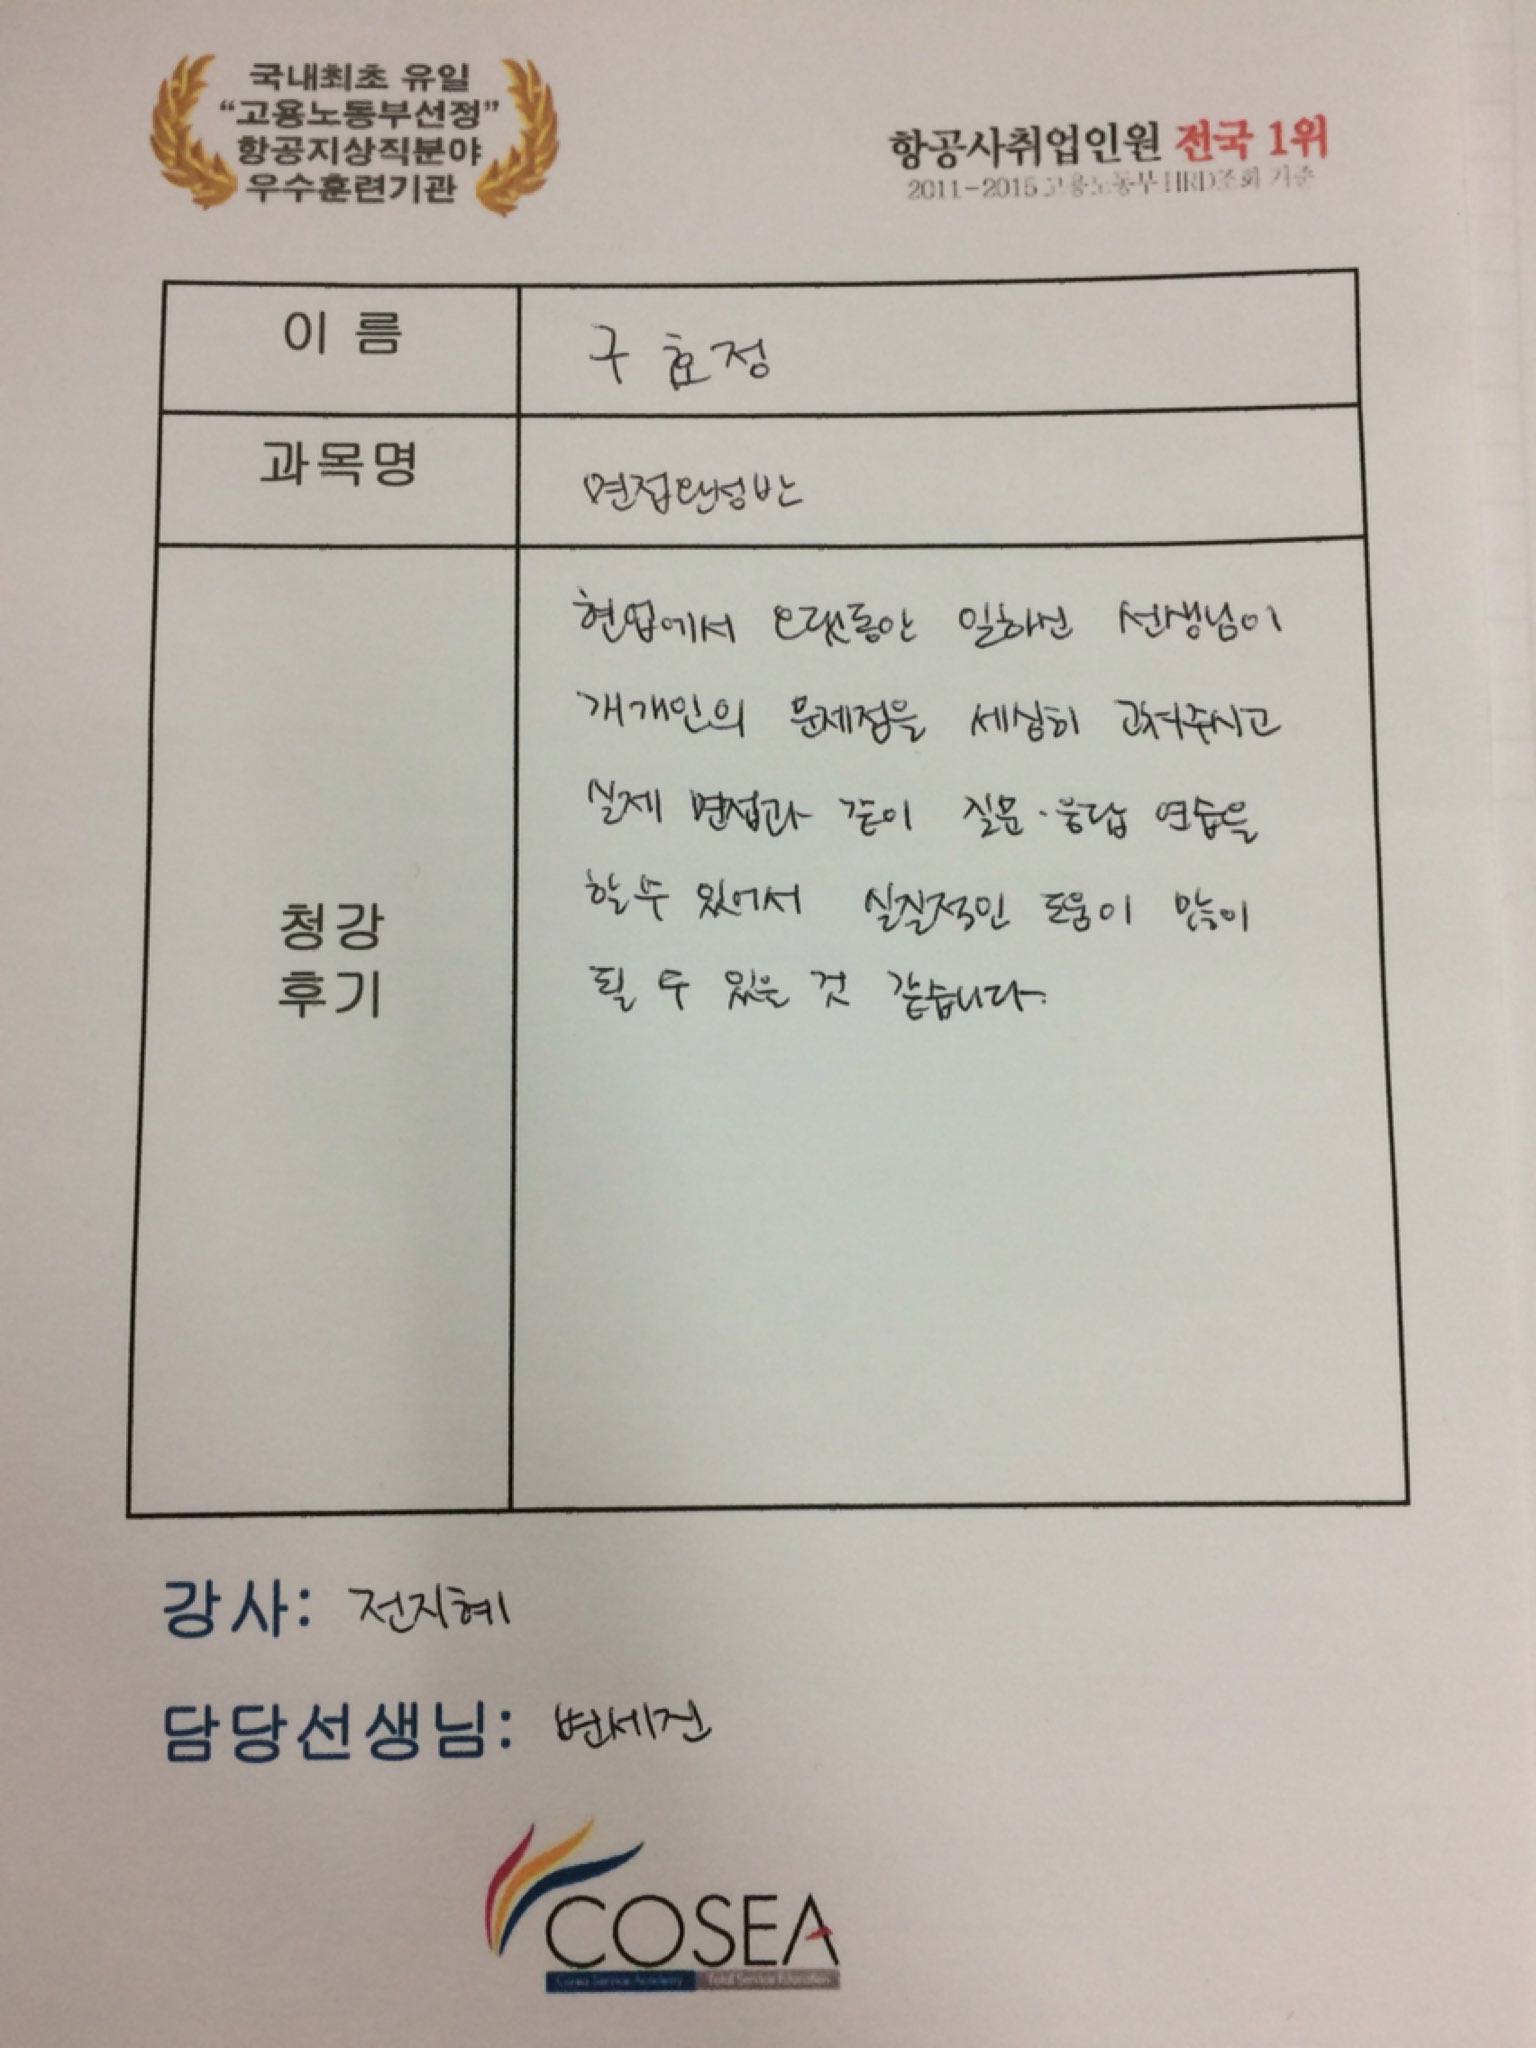 국내최초 유일
“고용노동부선정”
항공지상직분야
우수훈련기관
항공사취업인원 전국 1위
2011-2015 고용노동부 HRD조회 기준
이 름
구 효정
과목명
면접완성반
현업에서 오랫동안 일하신 선생님이
개개인의 문제점을 세심히 고쳐주시고
실제 면접과 같이 질문·응답 연습을
할 수 있어서 실질적인 도움이 많이
될 수 있을 것 같습니다.
청강
후기
강사: 전지혜
담당선생님: 변세진
COSEA
Cosea Service Academy Total Service Education